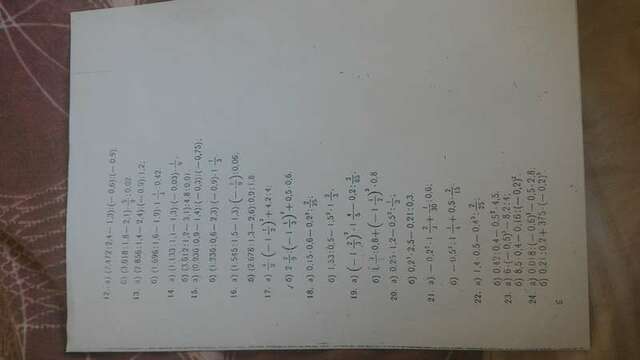 12. а) (2,472 : 2,4 — 1,3) : (— 0,6) : (— 0,9);
б) (3,618 : 1,8 — 2,1) · 5/9 : 0,02.
13. а) (2,856 : 1,4 — 2,4) : (— 0,9) : 1,2;
б) (1,696 : 1,6 — 1,9) · 1 1/4 : 0,42.
14. а) (1,133 : 1,1 — 1,3) : (— 0,03) · 1/9;
б) (3,612 : 1,2 — 3,1) : 4,8 : 0,01.
15. а) (0,936 : 0,9 — 1,4) : (— 0,3) : (— 0,75);
б) (1,236 : 0,6 — 2,3) : (— 0,9) · 1 1/3.
16. а) (1,545 : 1,5 — 1,3) · (— 1/9) : 0,06;
б) (2,678 : 1,3 — 2,6) : 0,9 : 1,8.
17. а) : (— 1 1/2)² + 4,2 : 4;
б) 2 2/9 : (— 1 1/3)² + 0,5 · 0,6.
18. а) 0,15 · 0,6 — 0,2³ : 2/25;
б) 1,53 : 0,5 — 1,5² · 1 1/3.
19. а) (— 1 2/3)² · 1 4/5 — 0,2 : 2/65;
б) : 0,8 + (— 1 1/2)³ · 0,8.
20. а) 0,25 · 1,2 — 0,5² : 1/2;
б) 0,2³ · 2,5 — 0,21 : 0,3.
21. а) — 0,2² · 1 2/3 + 1/30 : 0,6;
б) — 0,5² : 1 1/4 + 0,5 · 2/15.
22. а) 1,4 · 0,5 — 0,4³ : 2/25;
б) 0,42 : 0,4 — 0,5² · 4,5.
23. а) 6 · (— 0,5)³ — 8,2 : 4;
б) 8,5 · 0,4 — 0,16 : (— 0,2)².
24. а) 0,018 : (— 0,6)³ — 0,5 · 2,8;
б) 0,21 : 0,2 + 375 · (— 0,2)³.
6